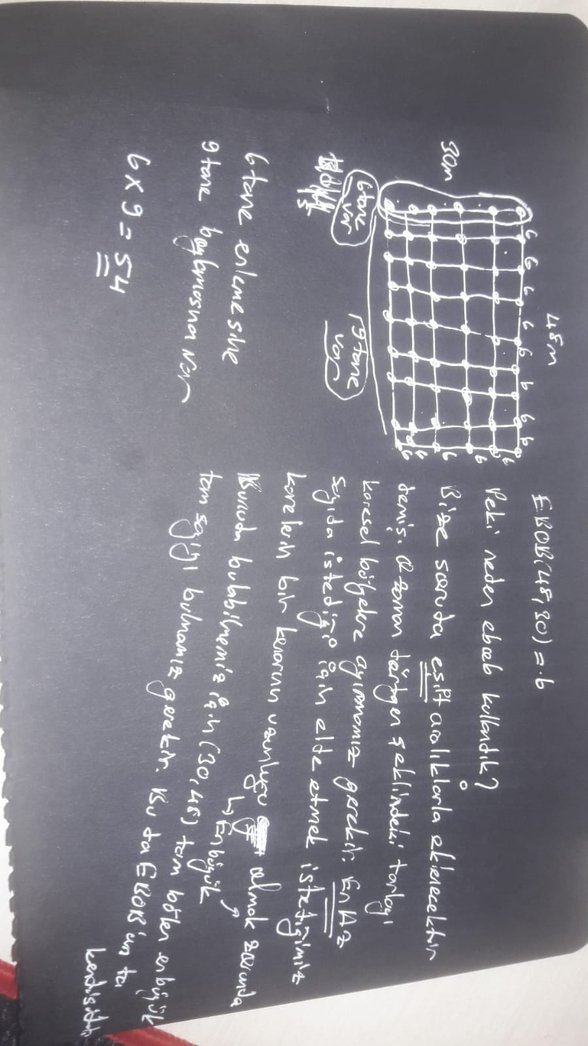 48m
6 6 6 6 6 6 6 6
30m
6
6
6
6
6
6 tane var
9 tane var
6 tane enlemesine
9 tane boylamasına var
6 x 9 = 54
EBOB(48,30) = 6
Peki neden ebob kullandık?
Bize soruda eşit aralıklarla ekilecektir
demiş. O zaman dörtgen şeklindeki tarlayı
karesel bölgelere ayırmamız gerekir. En Az
sayıda istediği için elde etmek istediğimiz
karelerin bir kenarının uzunluğu olmak zorunda
↳ En büyük
Bunuda bulabilmemiz için (30,48) tam bölen en büyük
tam sayıyı bulmamız gerekir. Bu da EBOB'un ta
kendisidir